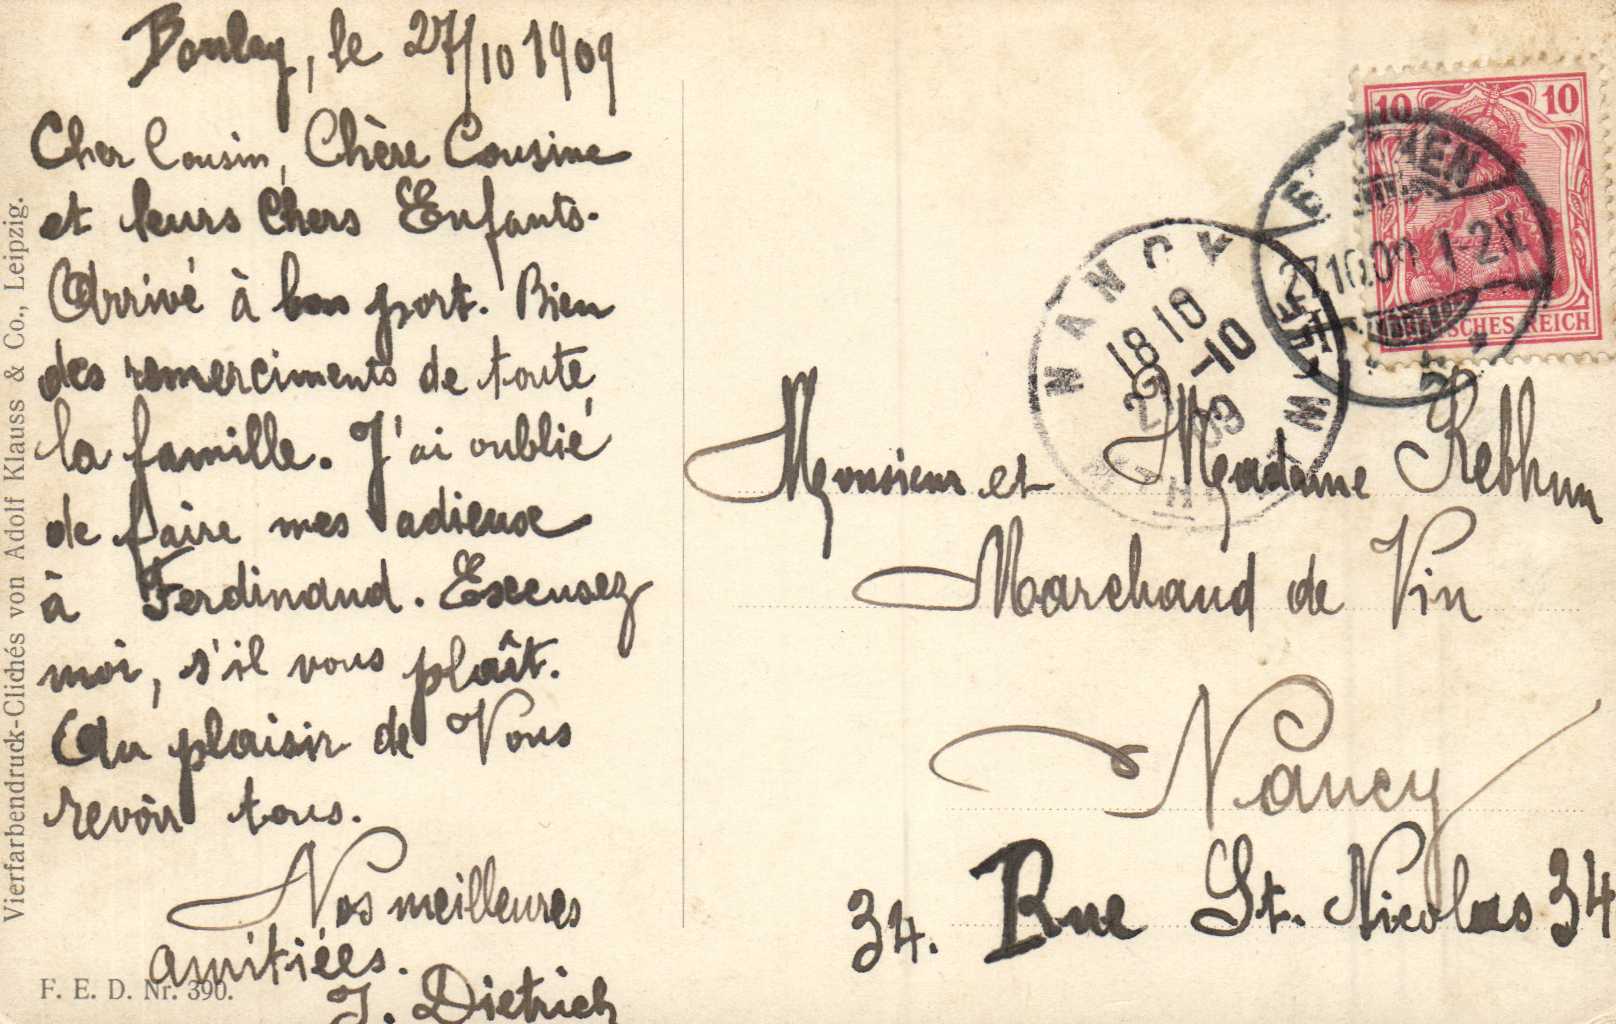 Boulay, le 27/10 1909
Cher Cousin, Chère Cousine
et leurs Chers Enfants.
Arrivé à bon port. Bien
des remerciments de toute
la famille. J'ai oublié
de faire mes adieux
à Ferdinand. Excusez
moi, s'il vous plaît.
Au plaisir de Vous
revoir tous.
Nos meilleures
amitiées.
J. Dietrich
Vierfarbendruck-Clichés von Adolf Klauss & Co., Leipzig.
F. E. D. Nr. 390.
10 10
DEUTSCHES REICH
27.10.09 1-2N
NANCY
18 10
-10
09
Monsieur et Madame Rebhun
Marchand de Vin
Nancy
34. Rue St. Nicolas 34